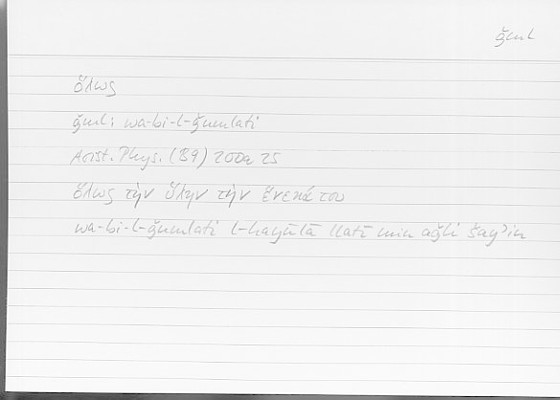 ǧml
ὅλως
ǧml: wa-bi-l-ǧumlati
Arist. Phys. (B9) 200a 25
ὅλως τὴν ὕλην τὴν ἕνεκά του
wa-bi-l-ǧumlati l-hayūlā llatī min aǧli šayʾin